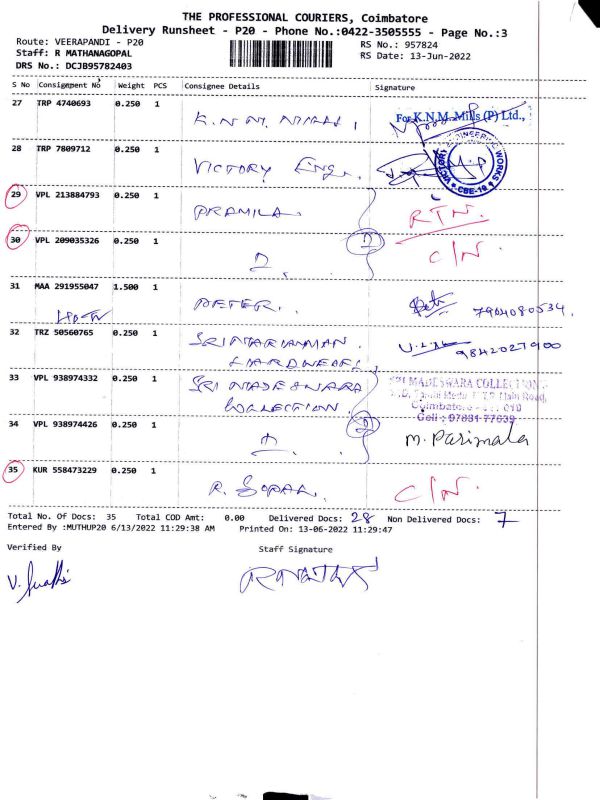 THE PROFESSIONAL COURIERS, Coimbatore
Delivery Runsheet - P20 - Phone No.:0422-3505555 - Page No.:3
Route: VEERAPANDI - P20 RS No.: 957824
Staff: R MATHANAGOPAL RS Date: 13-Jun-2022
DRS No.: DCJB95782403
S No Consignment No Weight PCS Consignee Details Signature
27 TRP 4740693 0.250 1 K.N.M. MILLS, For K.N.M. Mills (P) Ltd.,
28 TRP 7809712 0.250 1 VICTORY ENG. VICTORY ENGINEERING WORKS CBE-19
29 VPL 213884793 0.250 1 PRAMILA. RTN.
30 VPL 209035326 0.250 1 2. C/N.
31 MAA 291955047 1.500 1 PETER. 7904080534.
32 TRZ 50560765 0.250 1 SRI MARIAMMAN 9842027900
HARDWARE,
33 VPL 938974332 0.250 1 SRI MADESWARA SRI MADESWARA COLLECTION
COLLECTION.
Cell : 97881 77639
34 VPL 938974426 0.250 1 M. Parimala
35 KUR 558473229 0.250 1 R. GOPAL. C/N.
Total No. Of Docs: 35 Total COD Amt: 0.00 Delivered Docs: 28 Non Delivered Docs: 7
Entered By :MUTHUP20 6/13/2022 11:29:38 AM Printed On: 13-06-2022 11:29:47
Verified By Staff Signature